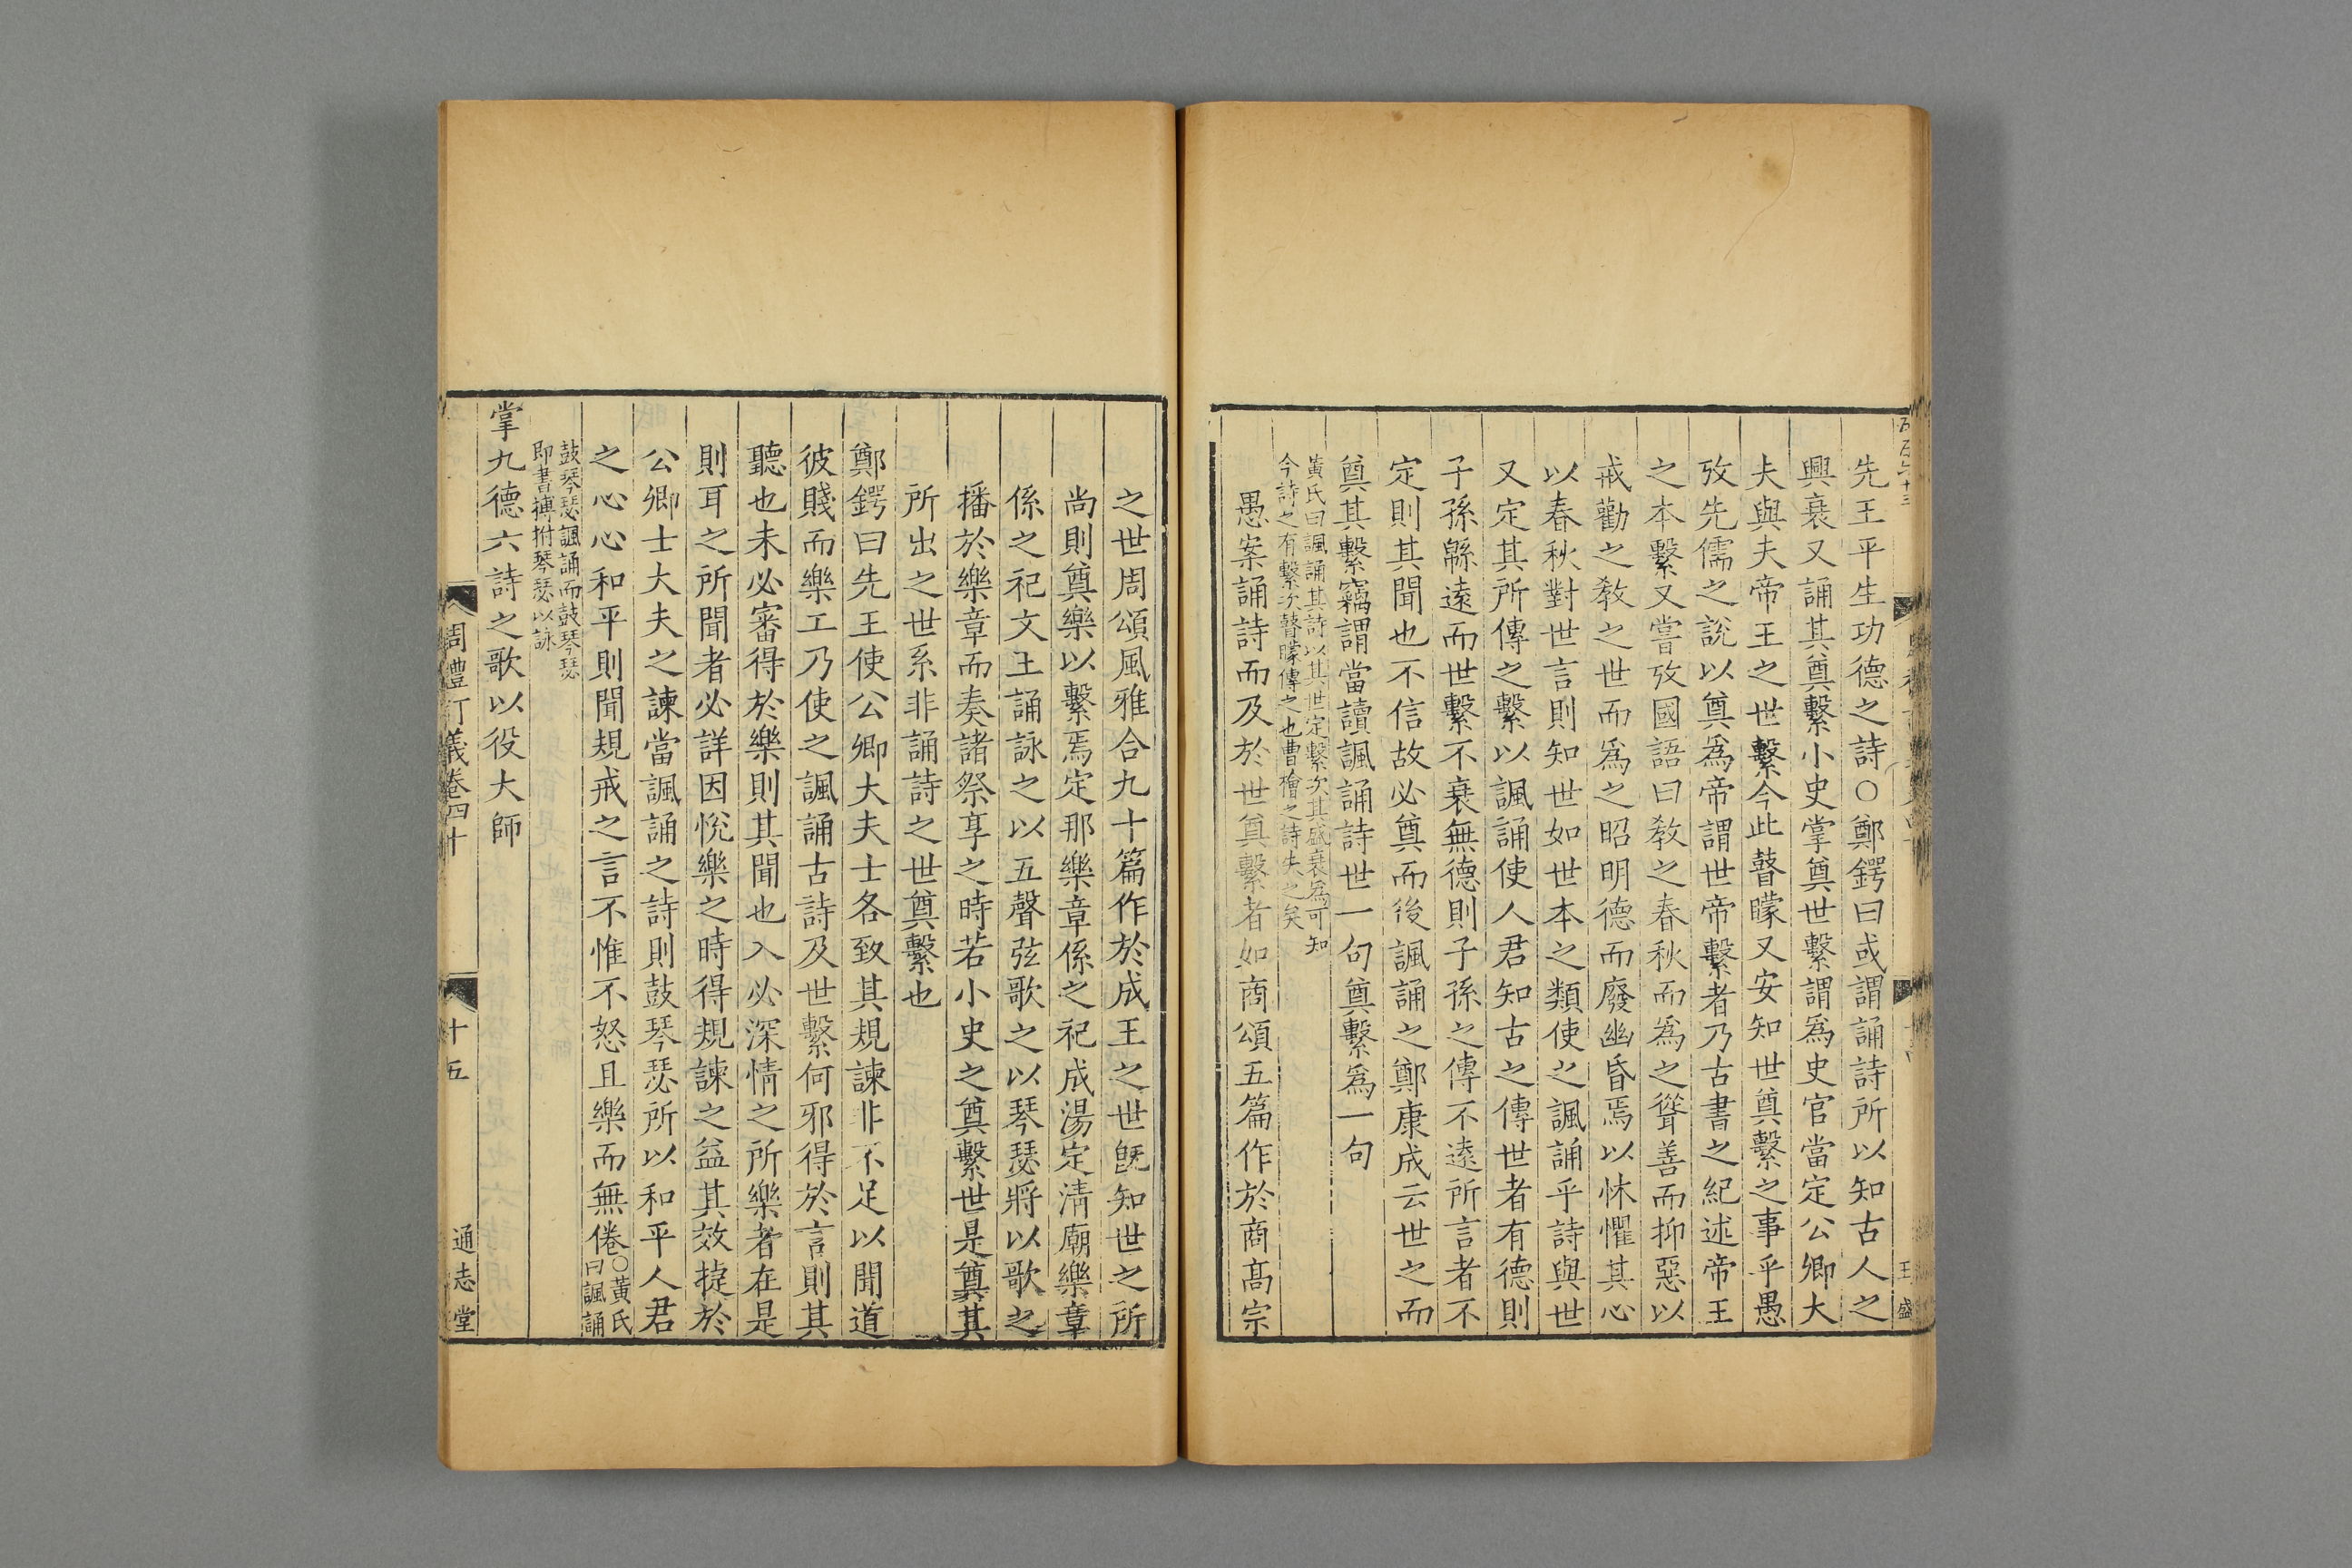 先王平生功德之詩○鄭鍔曰或謂誦詩所以知古人之
興衰又誦其奠繫小史掌奠世繫謂爲史官當定公卿大
夫與夫帝王之世繫今此瞽矇又安知世奠繫之事乎愚
攷先儒之說以奠爲帝謂世帝繫者乃古書之紀述帝王
之本繫又嘗攷國語曰敎之春秋而爲之聳善而抑惡以
戒勸之敎之世而爲之昭明德而廢幽昏焉以怵懼其心
以春秋對世言則知世如世本之類使之諷誦乎詩與世
又定其所傳之繫以諷誦使人君知古之傳世者有德則
子孫緜遠而世繫不衰無德則子孫之傳不遠所言者不
定則其聞也不信故必奠而後諷誦之鄭康成云世之而
奠其繫竊謂當讀諷誦詩世一句奠繫爲一句
黃氏曰諷誦其詩以其世定繫次其盛衰爲可知
今詩之有繫次瞽矇傳之也曹檜之詩失之矣
愚案誦詩而及於世奠繫者如商頌五篇作於商髙宗
王盛
之世周頌風雅合九十篇作於成王之世旣知世之所
尚則奠樂以繫焉定那樂章係之祀成湯定清廟樂章
係之祀文王誦詠之以五聲弦歌之以琴瑟將以歌之
播於樂章而奏諸祭享之時若小史之奠繫世是奠其
所出之世系非誦詩之世奠繫也
鄭鍔曰先王使公卿大夫士各致其規諫非不足以聞道
彼賤而樂工乃使之諷誦古詩及世繫何邪得於言則其
聽也未必審得於樂則其聞也入必深情之所樂者在是
則耳之所聞者必詳因悅樂之時得規諫之益其效㨗於
公卿士大夫之諫當諷誦之詩則鼓琴瑟所以和平人君
之心心和平則聞規戒之言不惟不怒且樂而無倦○黃氏
曰諷誦
鼓琴瑟諷誦而鼓琴瑟
即書摶拊琴瑟以詠
掌九德六詩之歌以役大師
周禮訂義卷四十
十五
通志堂